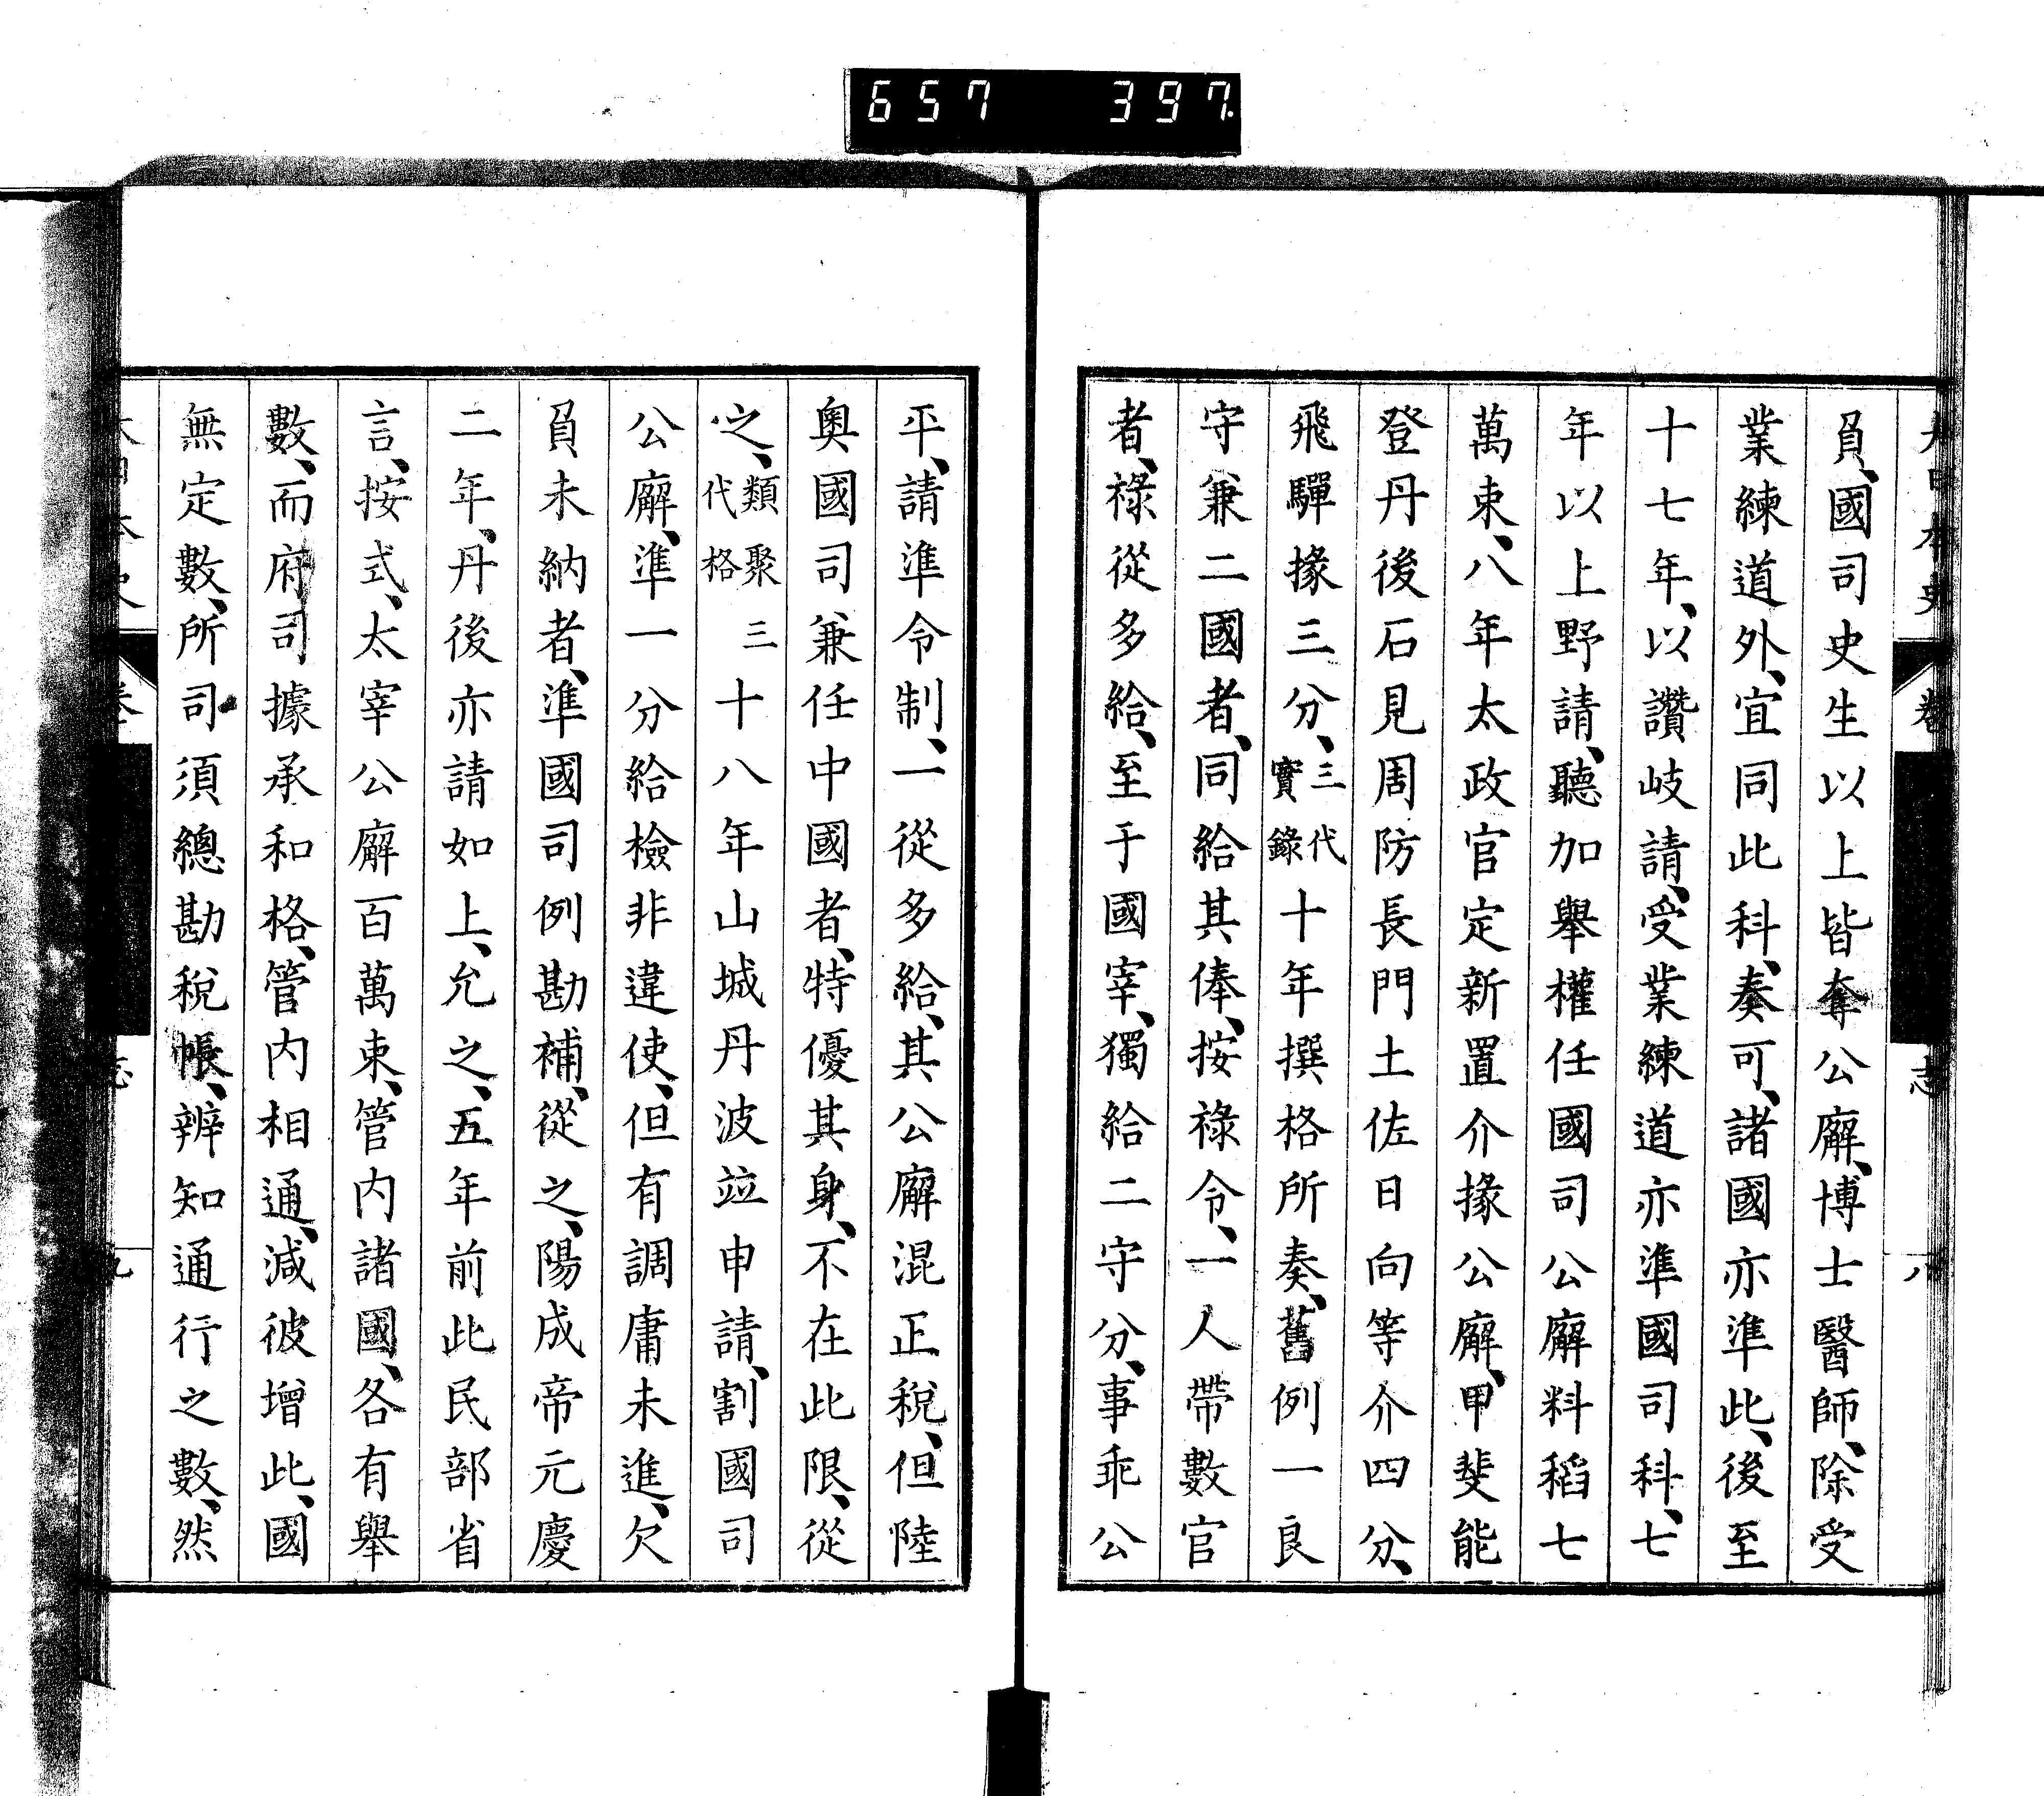 657 397.
大日本史 卷 志 八
負、國司史生以上皆奪公廨、博士醫師、除受
業練道外、宜同此科、奏可、諸國亦準此、後至
十七年、以讚岐請、受業練道亦準國司科、七
年以上野請、聽加舉權任國司公廨料稻七
萬束、八年太政官定新置介掾公廨、甲斐能
登丹後石見周防長門土佐日向等介四分、
飛驒掾三分、三代實錄十年撰格所奏、舊例一良
守兼二國者、同給其俸、按祿令、一人帶數官
者、祿從多給、至于國宰、獨給二守分、事乖公
平、請準令制、一從多給、其公廨混正稅、但陸
奧國司兼任中國者、特優其身、不在此限、從
之、類聚三代格 十八年山城丹波竝申請、割國司
公廨、準一分給檢非違使、但有調庸未進、欠
負未納者、準國司例勘補、從之、陽成帝元慶
二年、丹後亦請如上、允之、五年前此民部省
言、按式、太宰公廨百萬束、管内諸國、各有舉
數、而府司據承和格、管内相通、減彼增此、國
無定數、所司須總勘稅帳、辨知通行之數、然
大日本史 卷 志 九